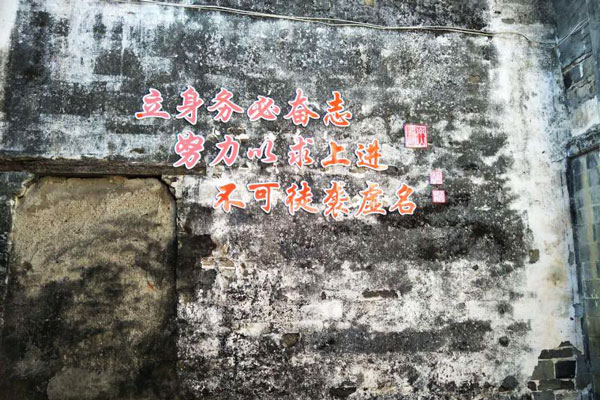 立身务必奋志
努力以求上进
不可徒袭虚名